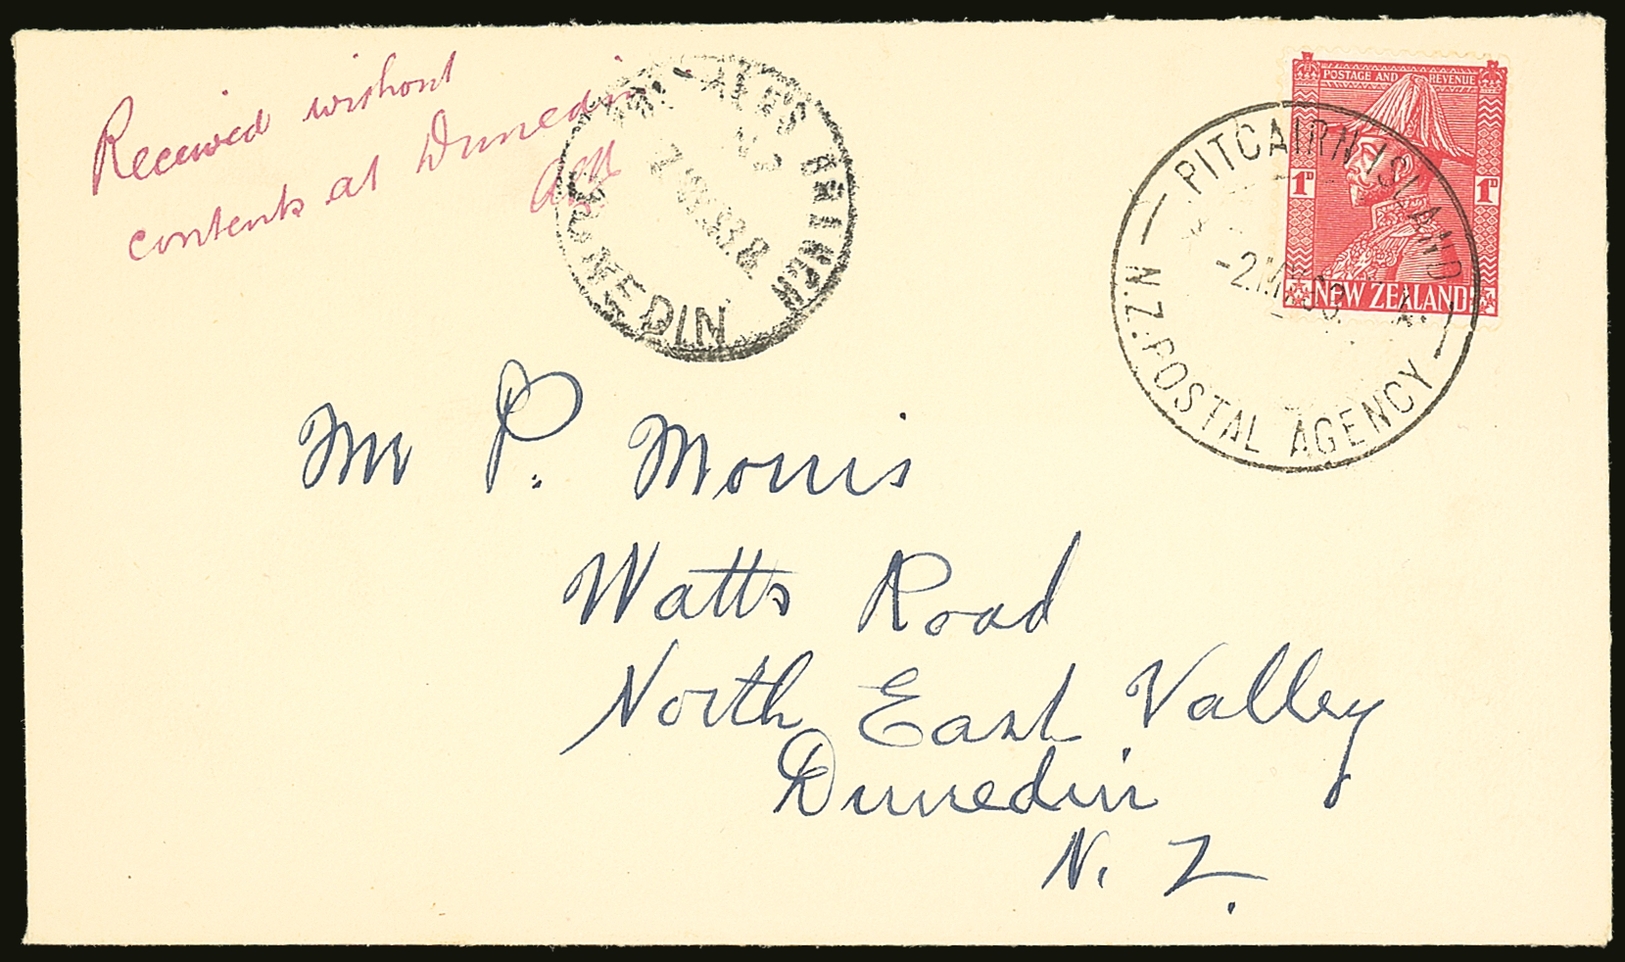 Received without
contents at Dunedin
POSTAGE AND REVENUE
1D 1D
NEW ZEALAND
PITCAIRN ISLAND
N.Z. POSTAL AGENCY
DUNEDIN
Mr P. Morris
Watts Road
North East Valley
Dunedin
N. Z.